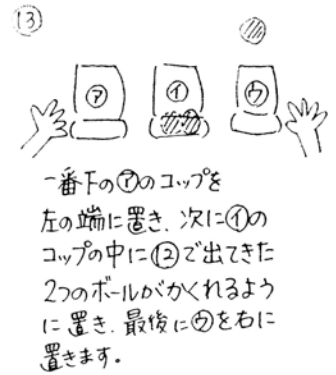 ⑬
㋐ ㋑ ㋒
一番下の㋐のコップを
左の端に置き、次に㋑の
コップの中に⑫で出てきた
2つのボールがかくれるよう
に置き、最後に㋒を右に
置きます。